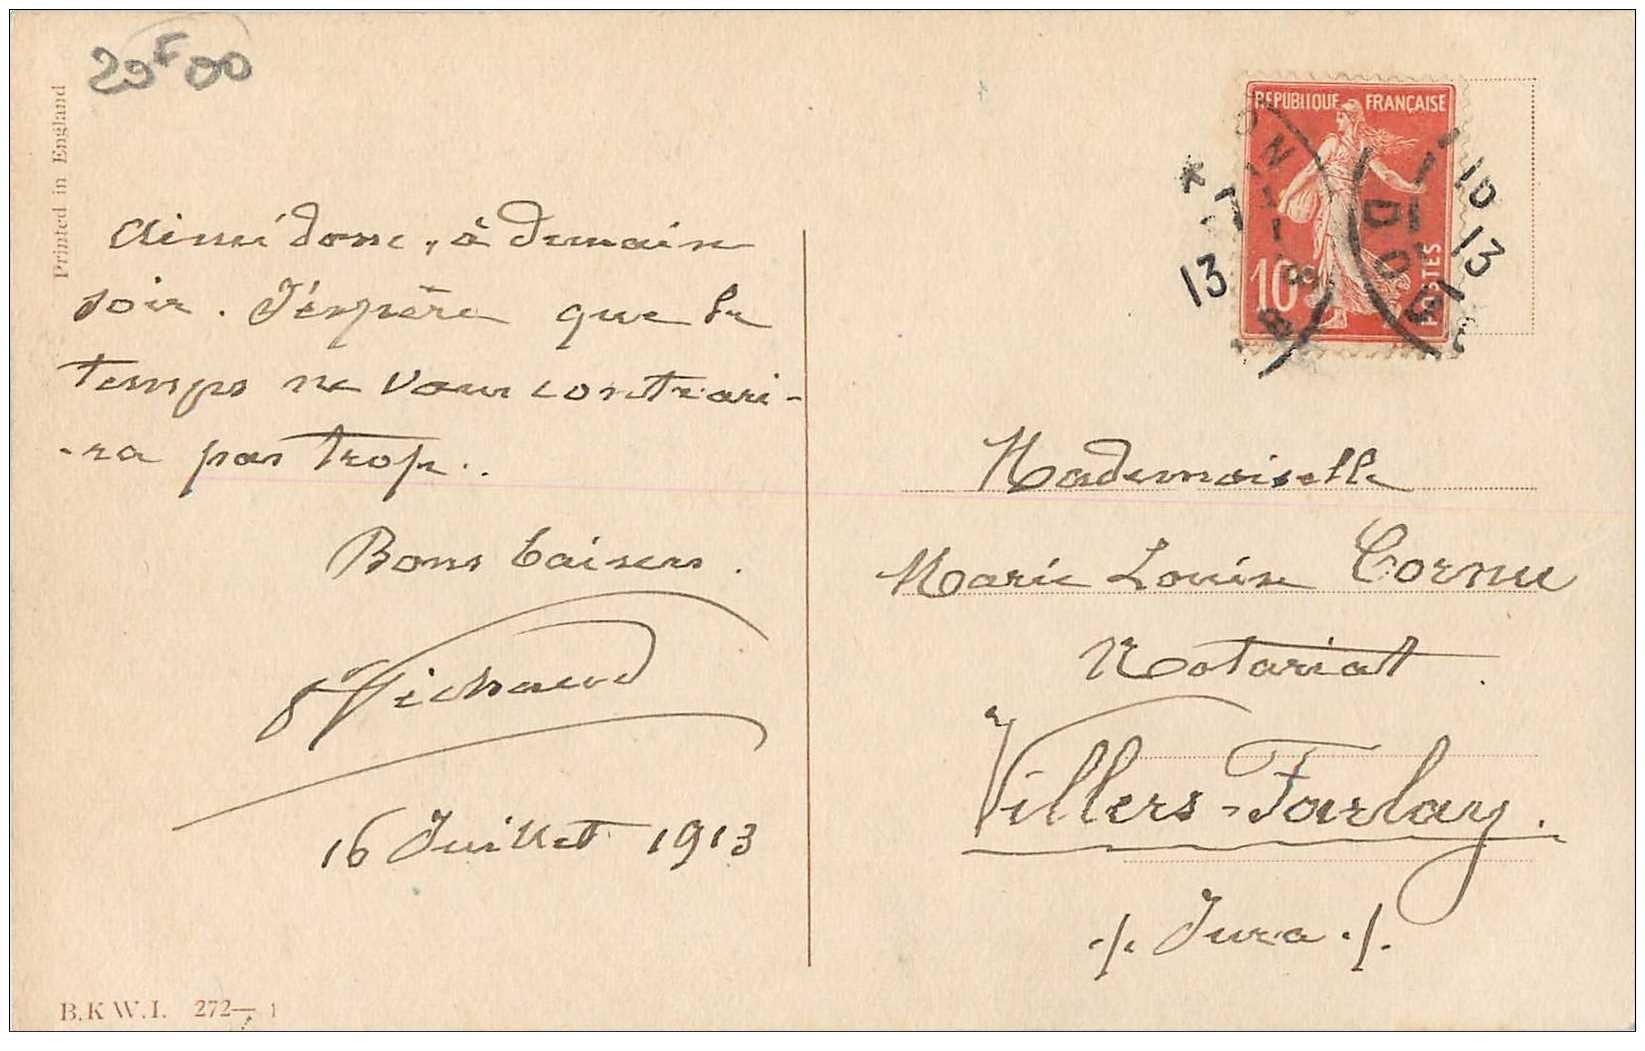 20F00
Printed in England
Ainsi donc, à demain
soir. J'espère que le
temps ne vous contrari-
-ra pas trop..
Bons baisers.
Michaud
16 Juillet 1913
B.K.W.I. 272-1
REPUBLIQUE FRANÇAISE
10
POSTES
13
16
13
Mademoiselle
Marie Louise Cornu
Notariat.
Villers-Farlay.
./. Jura ./.